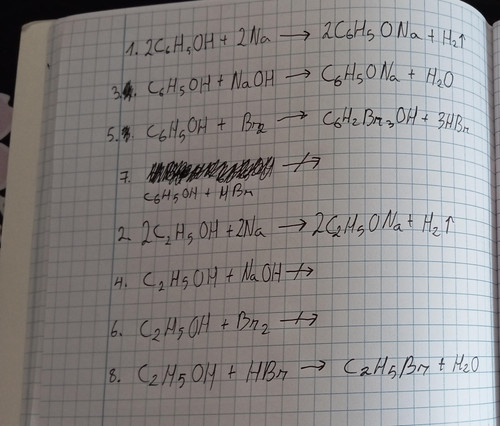 1. 2C₆H₅OH + 2Na → 2C₆H₅ONa + H₂↑
3. C₆H₅OH + NaOH → C₆H₅ONa + H₂O
5. C₆H₅OH + Br₂ → C₆H₂Br₃OH + 3HBr
7. ↛
C₆H₅OH + HBr
2. 2C₂H₅OH + 2Na → 2C₂H₅ONa + H₂↑
4. C₂H₅OH + NaOH ↛
6. C₂H₅OH + Br₂ ↛
8. C₂H₅OH + HBr → C₂H₅Br + H₂O